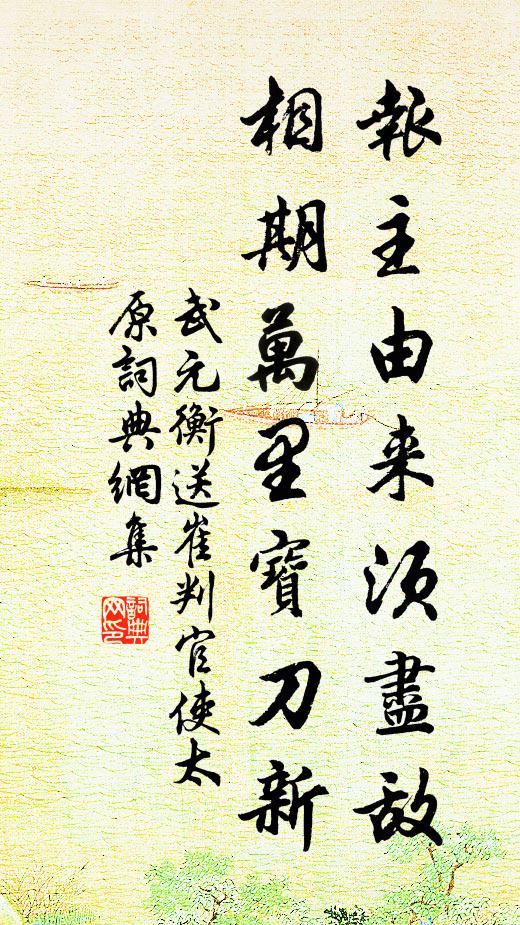 報主由来須盡敌
相期萬里寳刀新
武元衡送崔判官使太
原詞典網集
詞典網印